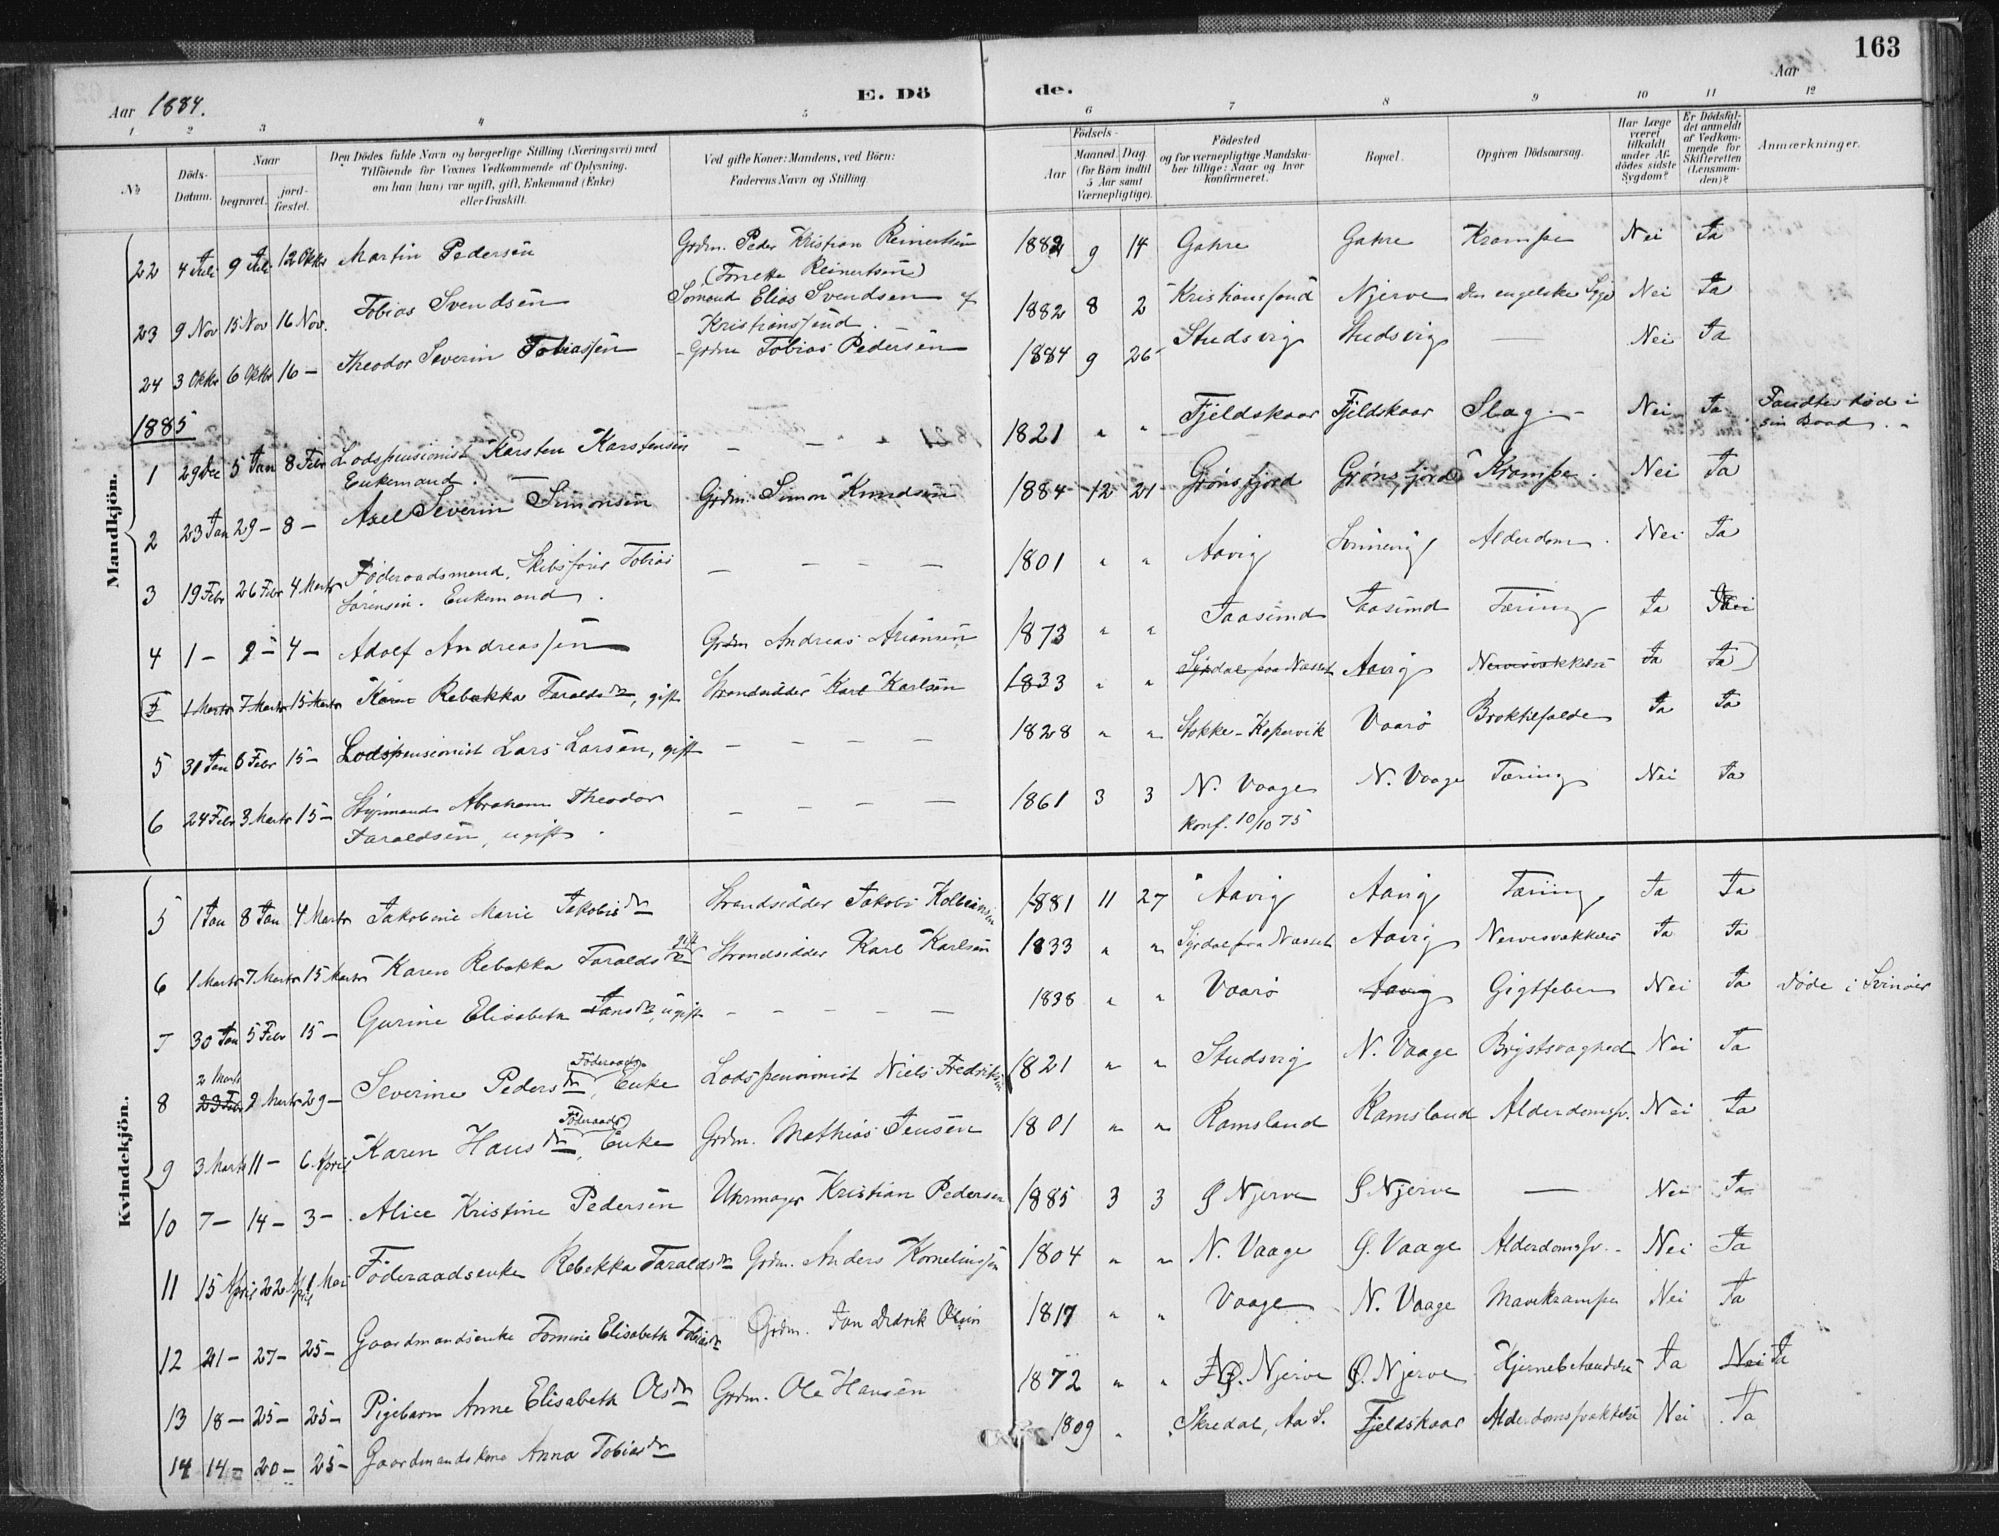 163
Aar 1884.
E. Dö de.
Aar
1 2 3 4 5 6 7 8 9 10 11 12
No
Döds-Datum.
Naar
begravet.
jord-fæstet.
Den Dödes fulde Navn og borgerlige Stilling (Næringsvei) med
Tilföiende for Voxnes Vedkommende af Oplysning,
om han (hun) var ugift, gift, Enkemand (Enke)
eller fraskilt.
Ved gifte Koner: Mandens, ved Börn:
Faderens Navn og Stilling
Födsels-
Aar
Maaned. Dag.
(for Børn indtil
5 Aar samt
Værnepligtige).
Födested
og for værnepligtige Mandska-
ber tillige: Naar og hvor
konfirmeret.
Bopæl.
Opgiven Dödsaarsag.
Har Læge
været
tilkaldt
under Af-
dödes sidste
Sygdom?
Er Dödsfal-
det anmeldt
af Vedkom-
mende for
Skifteretten
(Lensman-
den)?
Anmærkninger.
Mandkjön.
22 4 Juli 9 Juli 12 Oktbr Martin Pedersen Grdm. Peder Kristian Reinertsen 1882 9 14 Gahre Gahre Krampe Nei Ja
(Reinertsen)
23 9 Nov 15 Nov 16 Nov. Tobias Svendsen Sømand Elias Svendsen af 1882 8 2 Kristianssund Njerve Den engelske Syge Nei Ja
Kristianssund.
24 3 Oktbr 6 Oktbr 16 – Theodor Severin Tobiassen – Grdm Tobias Pedersen 1884 9 26 Studsvig Studsvig — Nei Ja
1885
1 29 Dec 5 Jan 8 Febr Lodspensionist Karsten Karstensen – – – 1821 " " Fjeldskaar Fjeldskaar Slag – Nei Ja Fandtes død i
Enkemand. sin Baad.
2 23 Jan 29 – 8 – Axel Severin Simonsen Grdm. Simon Knudsen 1884 12 21 Grønsfjord Grønsfjord Krampe. Nei Ja
3 19 Febr 26 Febr 4 Marts Föderaadsmand, Skibsfører Tobias – – – – 1801 " " Aavig Svinevig Alderdom. Nei Ja
Sørensen. Enkemand.
4 1 – 9 – 4 – Adolf Andreassen Grdm Andreas Arionsen 1873 " " Taasund Taasund Tæring Ja Nei
F 1 Marts 7 Marts 15 Marts Karen Rebekka Taraldsdr, gift Strandsidder Karl Karlsen 1833 " " Syrdal paa Næsset Aavig Nervesvækkelse Ja Ja
5 31 Jan 6 Febr 15 – Lodspensionist Lars Larsen, gift – – – – 1828 " " Stokke – Kopervik Vaarø Broktilfælde Ja Ja
6 24 Febr 3 Marts 15 – Styrmand Abraham Theodor – – – – 1861 3 3 N. Vaage N. Vaage Tæring Nei Ja
Taraldsen, ugift. Konf. 10/10 75
Kvindekjön.
5 1 Jan 8 Jan 4 Marts Jakobine Marie Jakobsdr Strandsidder Jakob Kolbensen 1881 11 27 Aavig Aavig Tæring Ja Ja
6 1 Marts 7 Marts 15 Marts Karen Rebekka Taraldsdr gift Strandsidder Karl Karlsen 1833 " " Syrdal paa Næsset Aavig Nervesvækkelse Ja Ja
7 30 Jan 5 Febr 15 – Gurine Elisabeth Jansdr, ugift – – – – – 1838 " " Vaarø Aavig Gigtfeber Nei Ja Døde i Svinøer
8 2 Marts 23 Febr 9 Marts 29 – Severine Pedersdr, Föderaads Enke Lodspensionist Niels Fredriksen 1821 " " Studsvig N. Vaage Brystsvaghed Nei Ja
9 3 Marts 11 – 6 April Karen Hansdr, Föderaads Enke Grdm. Mathias Jensen 1801 " " Ramsland Ramsland Alderdomssv. Nei Ja
10 7 – 14 – 3 – Alice Kristine Pedersen Uhrmager Kristian Pedersen 1885 3 3 Ø Njerve Ø Njerve — Nei Ja
11 15 April 22 April 1 Mai Föderaadsenke Rebekka Taraldsdr Grdm. Anders Korneliussen 1804 " " N. Vaage Ø. Vaage Alderdomssv. – Nei Ja
12 21 – 27 – 25 – Gaardmandsenke Tomine Elisabeth Tobiasdr Grdm. Jan Didrik 1817 " " Vaage N. Vaage Mavekrampe Nei Ja
13 18 – 25 – 25 – Pigebarn Anne Elisabeth Olsdr Grdm. Ole Hansen 1872 " " Ø. Njerve Ø. Njerve Hjernebetændelse Ja Nei Ja
14 14 – 20 – 25 – Gaardmandskone Anna Tobiasdr 1809 " Skredal, Aa S. Fjeldskaar Alderdomssvækkelse Nei Ja